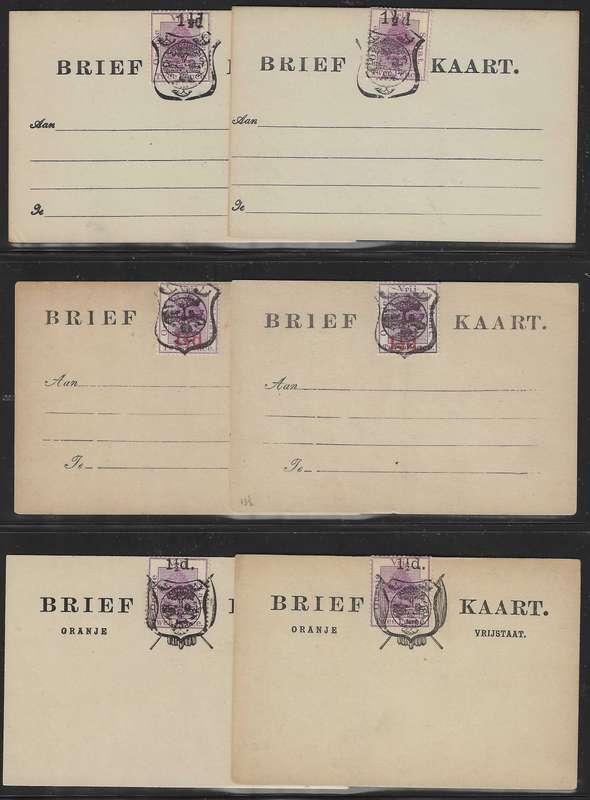 1½d
BRIEF K
Aan
Te
1½d
BRIEF KAART.
Aan
Te
BRIEF
Aan
Te
Vrij
BRIEF KAART.
Aan
Te
1½d.
BRIEF K
ORANJE
1½d.
BRIEF KAART.
ORANJE VRIJSTAAT.